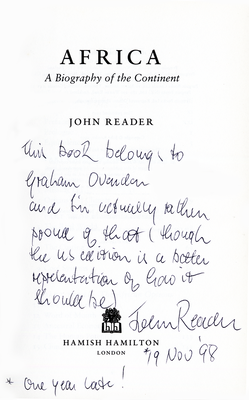 AFRICA
A Biography of the Continent
JOHN READER
This book belongs to
Graham Ovenden
and I'm actually rather
proud of that (though
the US edition is a better
representation of how it
should be)
John Reader
HAMISH HAMILTON
LONDON
*19 Nov '98
* One year late!